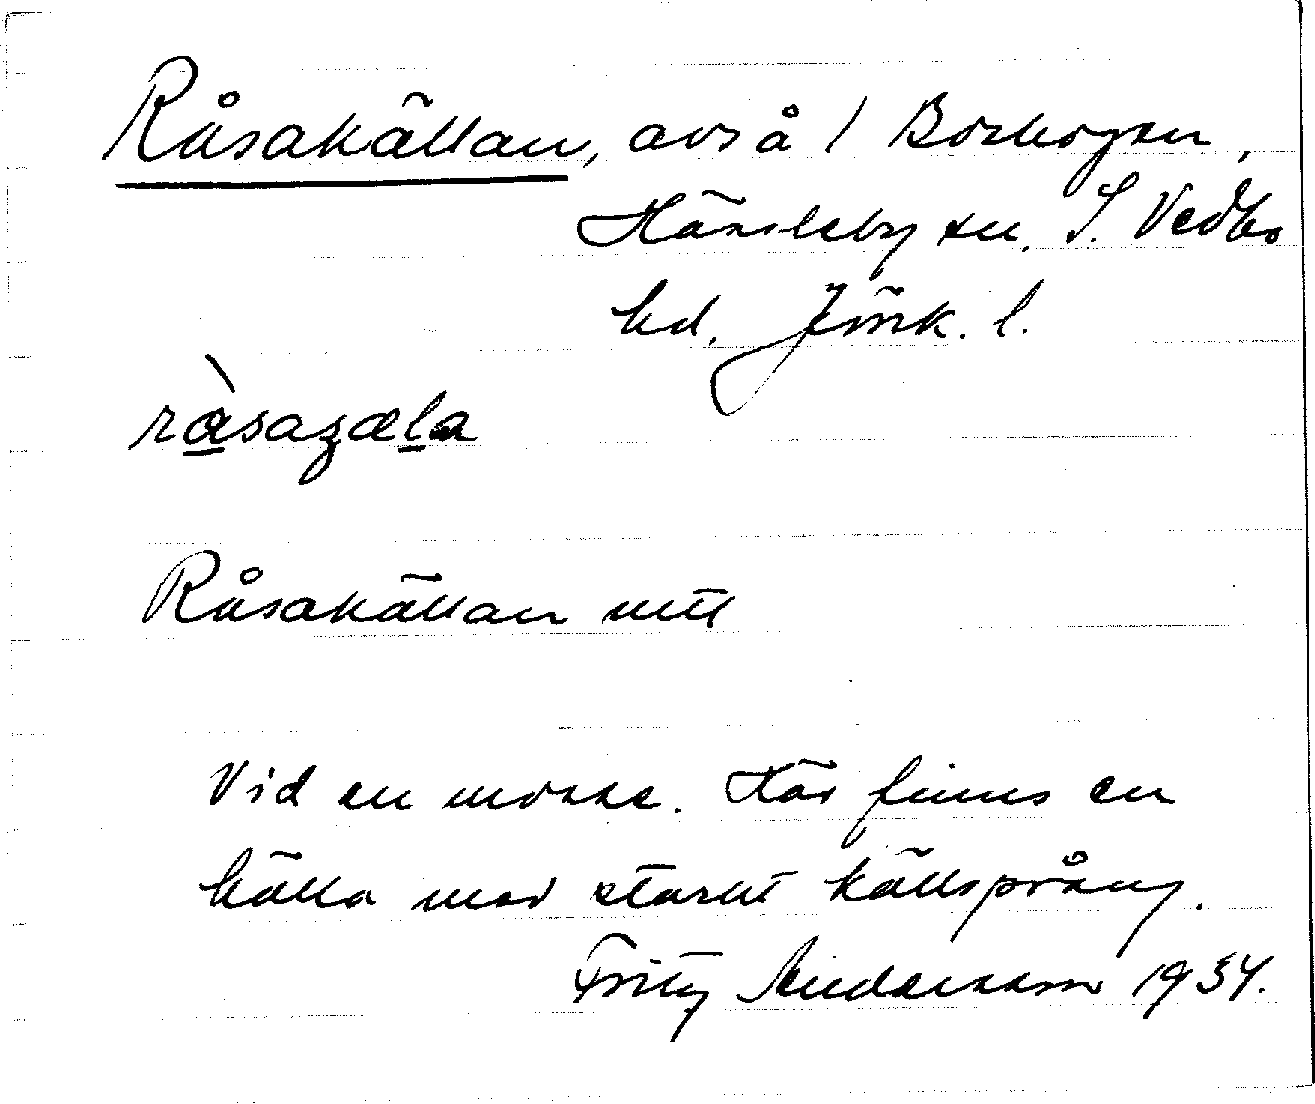 Råsakällan, avs å / Boskogen,
Hässleby sn. S. Vedbo
hd. Jönk. l.
ràsaʒæla
Råsakällan mtl
Vid en mosse. Här finns en
källa med starkt källsprång.
Fritz Andersson 1934.